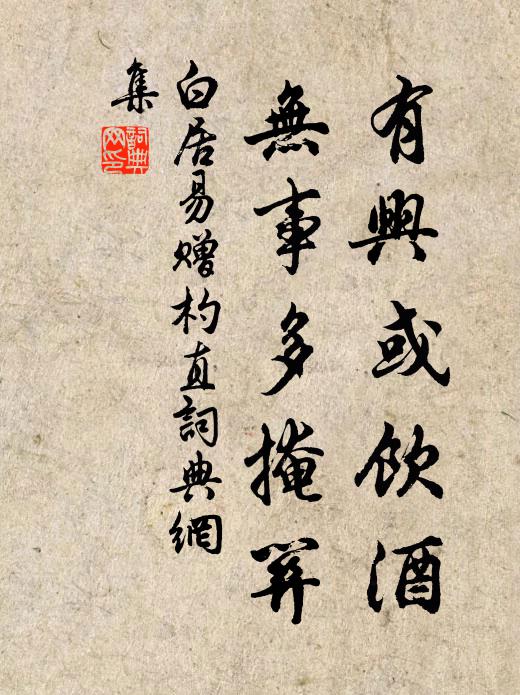 有興或飲酒
無事多掩關
白居易贈杓直詞典網
集
詞典网印